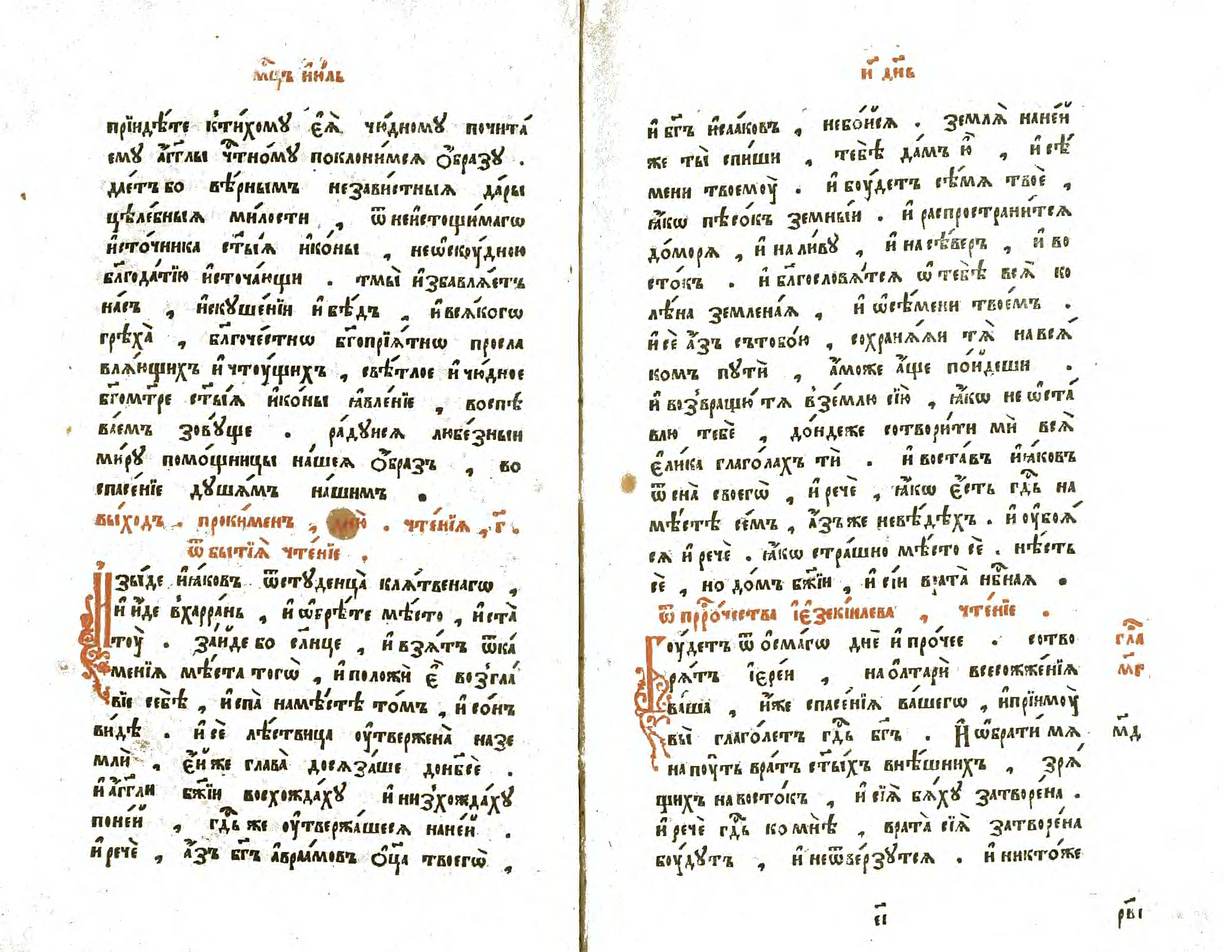 мⷭ҇цъ і҆ю́ль
прїидѣ́те к̾ти́хомꙋ є҆ѧ̀ чю́дномꙋ почита́
емꙋ а҆́гг҃лы чⷭ҇тномꙋ поклонимсѧ ѻ҆́бразꙋ .
дае́тъ бо вѣ́рнымъ незави́стныѧ да́ры
цѣле́бныѧ ми́лости , ѿ неисто́щимагѡ
и҆сто́чника ст҃ы́ѧ и҆ко́ны , неѡ҆скꙋ́дною
бл҃года́тїю и҆сточа́ющи . тмы̀ и҆збавлѧ́етъ
на́съ , и҆скꙋше́нїи и҆ бѣ́дъ , и҆ всѧ́когѡ
грѣха̀ , бл҃гоче́стнѡ бг҃опрїѧ́тнѡ просла
влѧ́ющихъ и҆ чтоу́щихъ , свѣ́тлое и҆ чю́дное
бг҃ома́тре ст҃ы́ѧ и҆ко́ны ꙗ҆вле́нїе , воспѣ
ва́емъ зовꙋ́ще . ра́дꙋисѧ любе́зныи
ми́рꙋ помо́щницы на́шеѧ ѻ҆́бразъ , во
спасе́нїе дꙋша́мъ на́шимъ .
вы́ходъ . проки́менъ , дню̀ . чте́нїѧ , г҃ .
ѿ бытїѧ̀ чте́нїе .
Изы́де и҆ꙗ́ковъ ѿстꙋденца̀ клѧ́твенагѡ ,
и҆ и҆́де в̾харра́нь , и҆ ѡ҆брѣ́те мѣ́сто , и҆ ста̀
тоу̀ . за́йде бо сл҃нце , и҆ взѧ́тъ ѿка́
менїѧ мѣ́ста тогѡ̀ , и҆ положѝ є҆̀ возгла́
вїе себѣ̀ , и҆ спа̀ намѣ́стѣ то́мъ , и҆ со́нъ
ви́дѣ . и҆ сѐ лѣ́ствица оу҆твержена̀ назе
млѝ , є҆́йже глава̀ досѧза́ше донб҃сѐ .
и҆ а҆́гг҃ли бж҃їи восхожда́хꙋ и҆ низ̾хожда́хꙋ
поне́й , гдⷭ҇ь же оу҆твержа́шесѧ нане́й .
и҆ речѐ , а҆́зъ бг҃ъ а҆враа́мовъ ѻ҆ц҃а̀ твоегѡ̀ ,
и҃ дн҃ь
и҆ бг҃ъ и҆саа́ковъ , небо́йсѧ . землѧ̀ нане́й
же ты̀ спи́ши , тебѣ̀ да́мъ ю҆̀ , и҆ сѣ́
мени твоемоу̀ . и҆ боу́детъ сѣ́мѧ твоѐ ,
ꙗ҆́кѡ пѣсо́къ земны́й . и҆ распространи́тсѧ
до́морѧ , и҆ на ли́вꙋ , и҆ на сѣ́веръ , и҆ во
сто́къ . и҆ бл҃гословѧ́тсѧ ѡ҆ тебѣ̀ всѧ̀ ко
лѣ́на земле́наѧ , и҆ ѡ҆ сѣ́мени твое́мъ .
и҆ сѐ а҆́зъ съ тобо́ю , сохранѧ́ѧи тѧ̀ на всѧ́
комъ пꙋтѝ , а҆́може а҆́ще по́йдеши .
и҆ воз̾вращю́ тѧ в̾зе́млю сїю̀ , ꙗ҆́кѡ не ѡ҆ста́
влю тебѐ , до́ндеже сотвори́ти мѝ всѧ̀
є҆ли́ка глаго́лахъ тѝ . и҆ воста́въ и҆ꙗ́ковъ
ѿ сна̀ своегѡ̀ , и҆ речѐ , ꙗ҆́кѡ є҆́сть гдⷭ҇ь на
мѣ́стѣ се́мъ , а҆́зъ же невѣ́дѣхъ . и҆ оу҆боѧ́
сѧ и҆ речѐ . ꙗ҆́кѡ стра́шно мѣ́сто сѐ . нѣ́сть
сѐ , но до́мъ бж҃їи , и҆ сїи врата̀ нб҃наѧ .
ѿ прⷪ҇ро́чества і҆є҆зекі́илева , чте́нїе .
Боу́детъ ѿ ѻ҆сма́гѡ днѐ и҆ про́чее . сотво
рѧ́тъ і҆ере́и , на ѻ҆лтарѝ всесожже́нїѧ
ва́ша , и҆́же спасе́нїѧ ва́шегѡ , и҆прїимоу̀
вы̀ глаго́летъ гдⷭ҇ь бг҃ъ . И ѡ҆брати́ мѧ
на поу́ть вра́тъ ст҃ы́хъ внѣ́шнихъ , зрѧ́
щихъ на восто́къ , и҆ сїѧ̀ бѧ́хꙋ затворе́на .
и҆ речѐ гдⷭ҇ь ко мнѣ̀ , врата̀ сїѧ̀ затворе́на
боу́дꙋтъ , и҆ неѿве́рзꙋтсѧ . и҆ никто́же
гла
мг҃
мд҃
є҃і
рв҃і